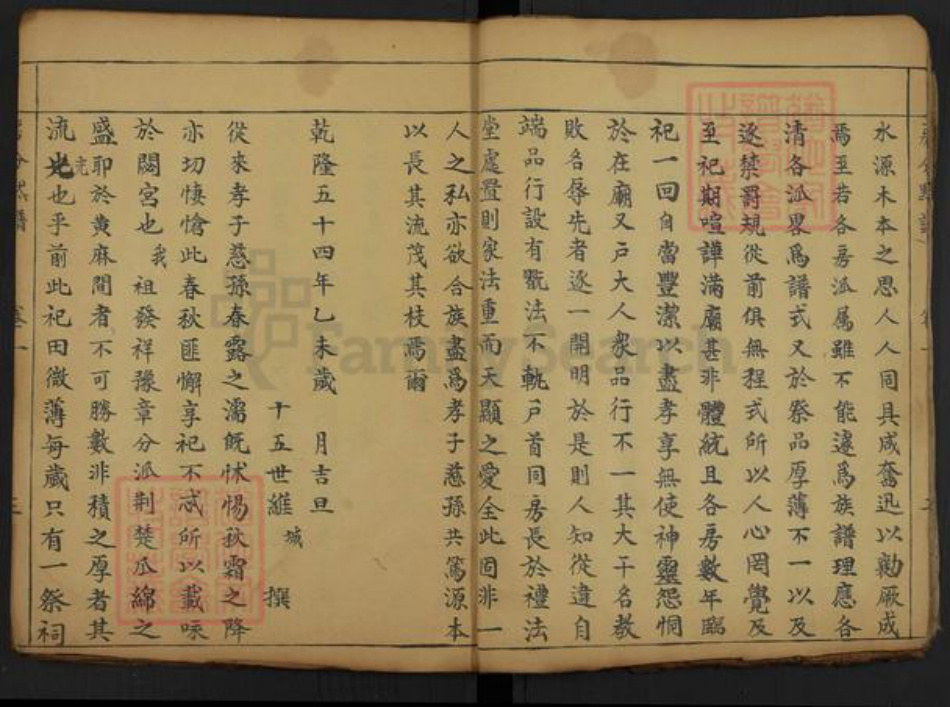 水源木本之思人人同具咸奮迅以勷厥成
焉至若各房派属雖不能遽爲族譜理應各
清各派畧爲譜式又於祭品厚薄不一以及
逐禁罰規從前俱無程式所以人心罔覺及
至祀期喧譁满廟甚非體統且各房數年臨
祀一回自當豐潔以盡孝享無使神靈怨恫
於在廟又戸大人衆品行不一其大干名教
敗名辱先者逐一開明於是則人知從違自
端品行設有翫法不軌戸首同房長於禮法
堂處置則家法重而天顯之愛全此固非一
人之私亦欲合族盡爲孝子慈孫共篤源本
以長其流茂其枝焉爾
乾隆五十四年乙未歳 月吉旦
十五世維城 撰
從來孝子慈孫春露之濡既怵惕秋霜之降
亦切悽愴此春秋匪懈享祀不忒所以載咏
於閟宮也我祖發祥豫章分派荆楚瓜綿之
盛耶於黄麻間者不可勝數非積之厚者其
流光也乎前此祀田微薄每歳只有一祭祠
FamilySearch